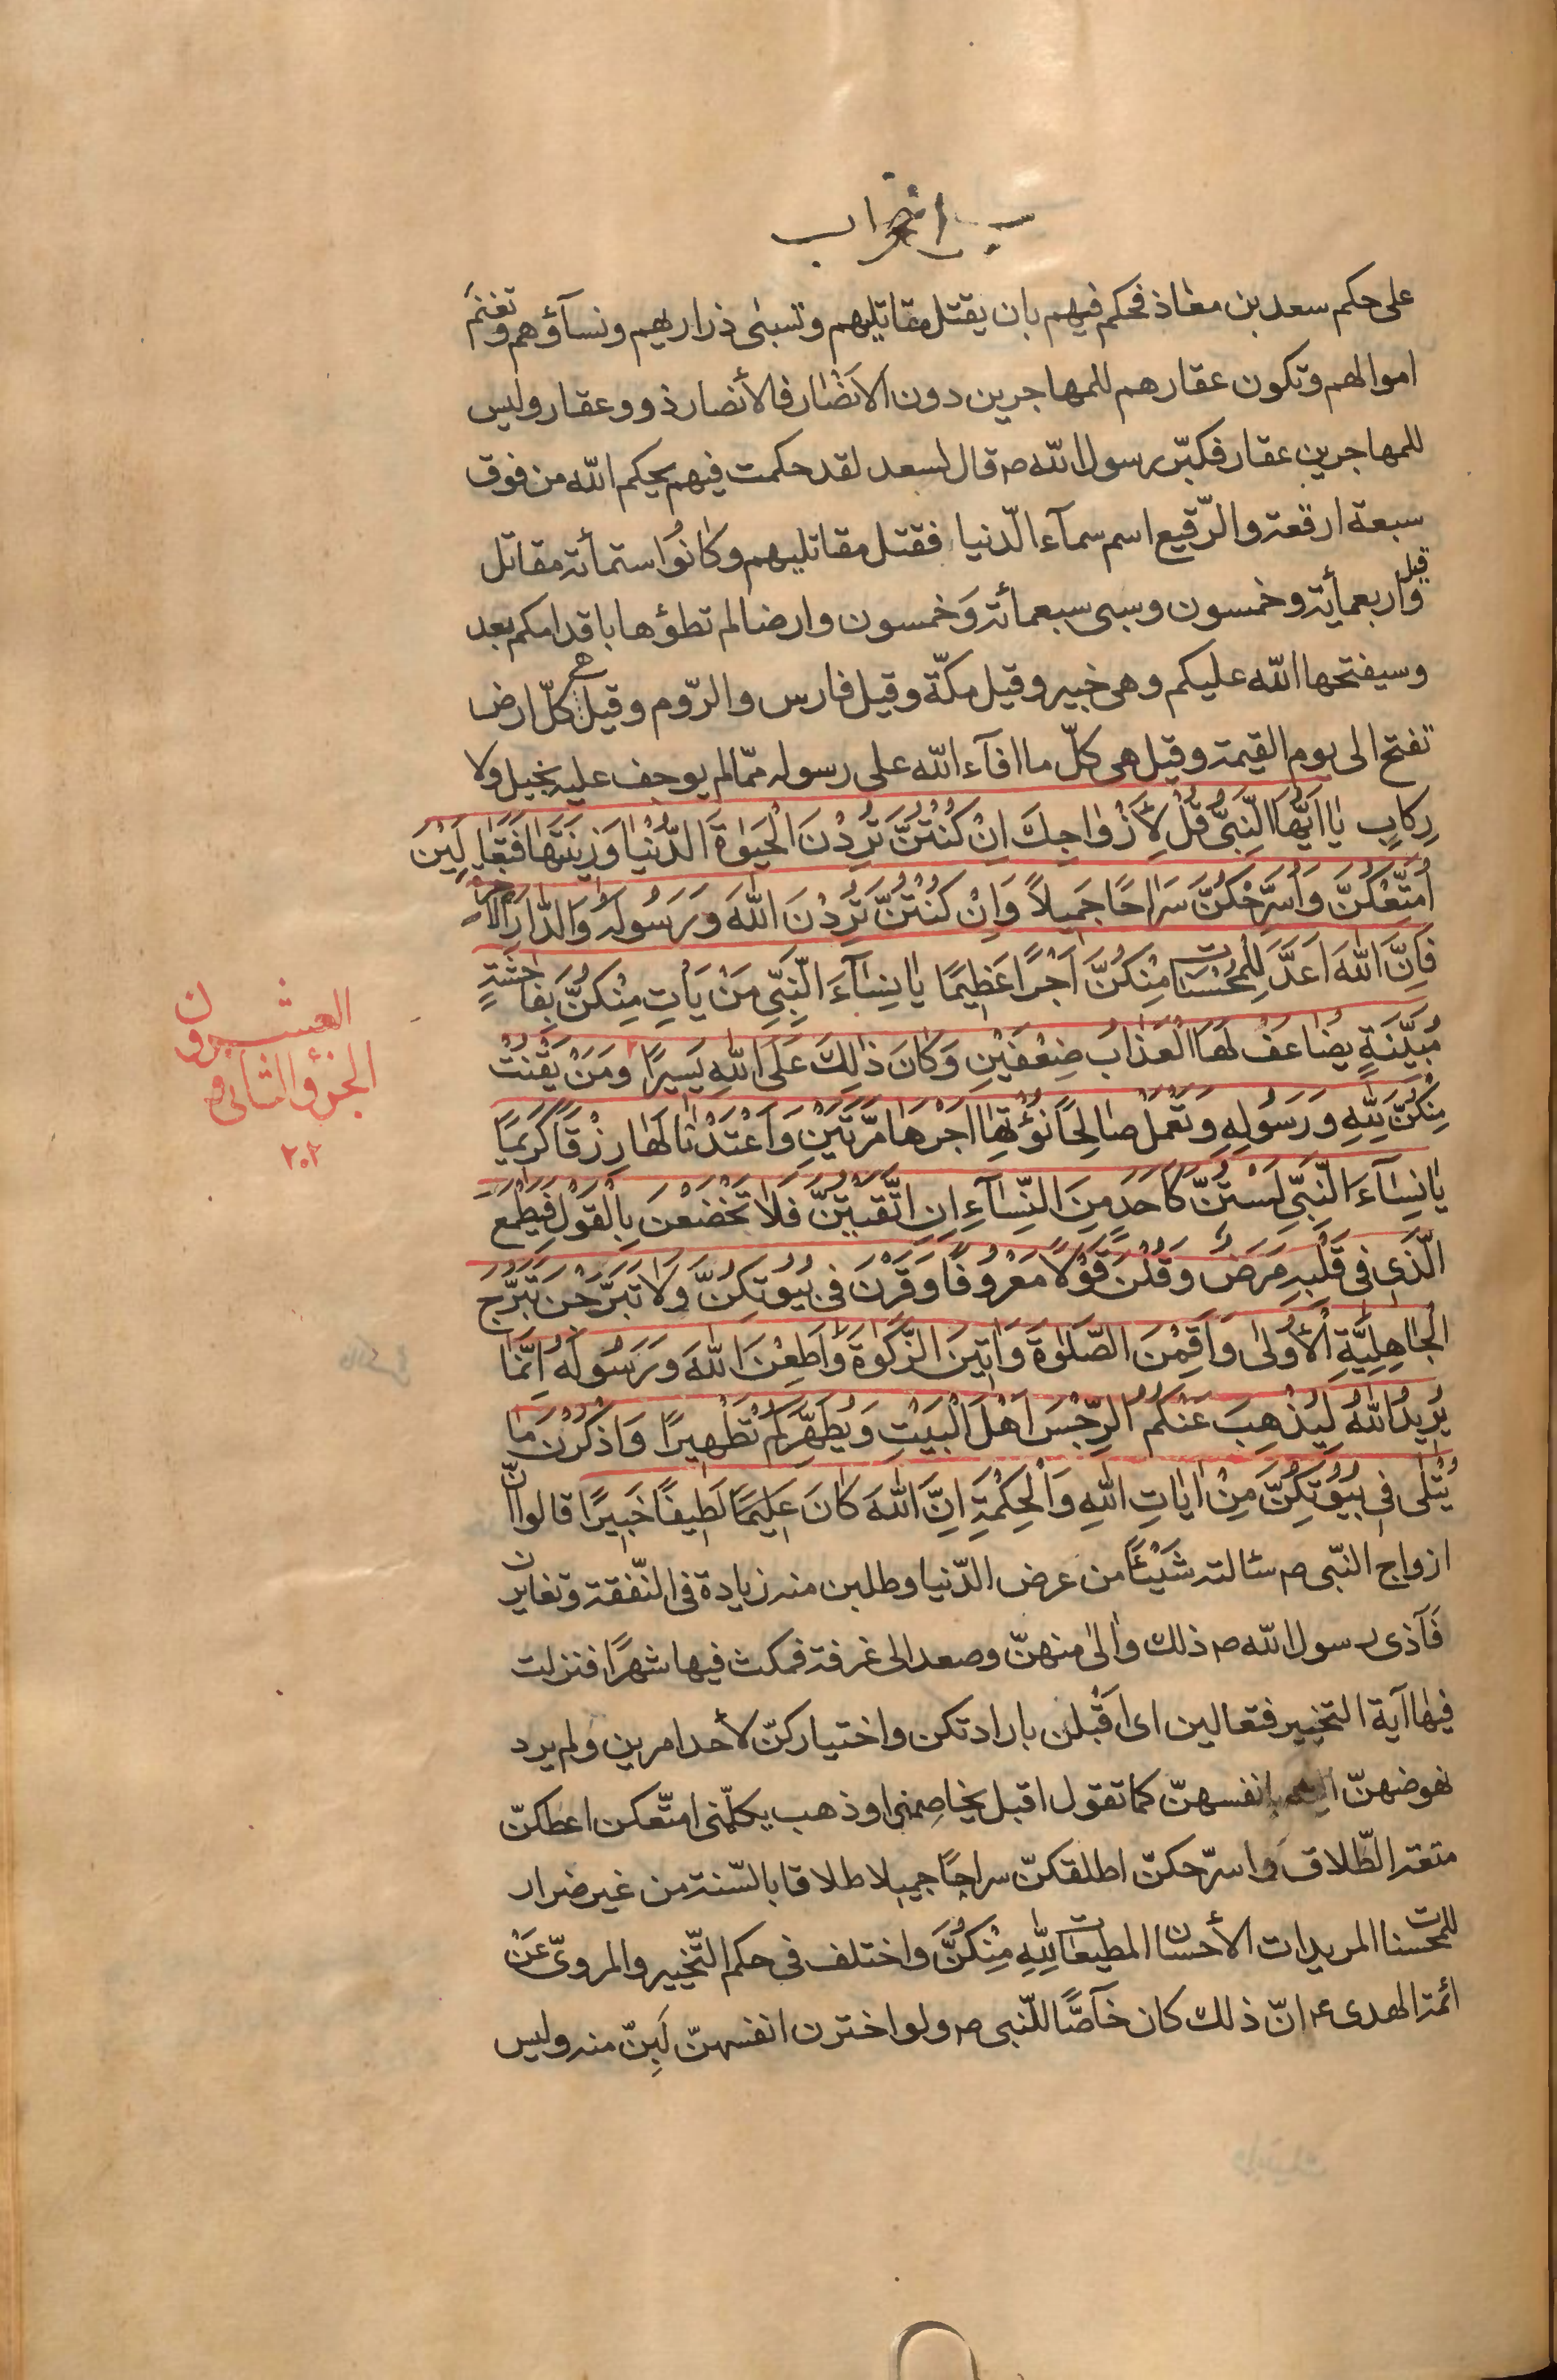 على حكم سعد بن معاذ فحكم فيهم بان يقتل مقاتليهم وتسبى ذراريهم ونسآؤهم وتغنم
اموالهم وتكون عقارهم للمهاجرين دون الانصار فالأنصار ذوو عقار وليس
للمهاجرين عقار فكبّر رسول الله ص قال لسعد لقد حكمت فيهم بحكم الله من فوق
سبعة ارقعة والرّقيع اسم سمآء الدّنيا فقتل مقاتليهم وكانوا ستمأة مقاتل
قيل واربعمأية وخمسون وسبى سبعمأة وَخمسون وارضا لم تطؤها باقدامكم بعد
وسيفتحها الله عليكم وهى خيبر وقيل مكّة وقيل فارس والرّوم وقيل هى كلّ ارض
تفتح الى يوم القيمة وقيل هى كلّ ما افآء الله على رسوله ممّا لم يوجف عليه بخيل ولا
رِكابٍ يٰا اَيُّهَا النَّبِىُّ قُلْ لِأَزْوٰاجِكَ اِنْ كُنْتُنَّ تُرِدْنَ الْحَيٰوةَ الدُّنْيٰا وَزِينَتَهٰا فَتَعٰالَيْنَ
اُمَتِّعْكُنَّ وَاُسَرِّحْكُنَّ سَرٰاحًا جَمِيلاً وَاِنْ كُنْتُنَّ تُرِدْنَ اللّٰهَ وَرَسُولَهُ وَالدّٰارَ الْاٰخِرَةَ
فَاِنَّ اللّٰهَ اَعَدَّ لِلْمُحْسِنٰاتِ مِنْكُنَّ اَجْرًا عَظِيمًا يٰا نِسٰآءَ النَّبِىِّ مَنْ يَاْتِ مِنْكُنَّ بِفٰاحِشَةٍ
مُبَيِّنَةٍ يُضٰاعَفْ لَهَا الْعَذٰابُ ضِعْفَيْنِ وَكٰانَ ذٰلِكَ عَلَى اللّٰهِ يَسِيرًا ٢ وَمَنْ يَقْنُتْ
مِنْكُنَّ لِلّٰهِ وَرَسُولِهِ وَتَعْمَلْ صٰالِحًا نُؤْتِهٰا اَجْرَهٰا مَرَّتَيْنِ وَاَعْتَدْنٰا لَهٰا رِزْقًا كَرِيمًا
يٰا نِسٰآءَ النَّبِىِّ لَسْتُنَّ كَاَحَدٍ مِنَ النِّسٰآءِ اِنِ اتَّقَيْتُنَّ فَلاٰ تَخْضَعْنَ بِالْقَوْلِ فَيَطْمَعَ
الَّذِى فِى قَلْبِهِ مَرَضٌ وَقُلْنَ قَوْلاً مَعْرُوفًا وَقَرْنَ فِى بُيُوتِكُنَّ وَلاٰ تَبَرَّجْنَ تَبَرُّجَ
الْجٰاهِلِيَّةِ الْأُولىٰ وَاَقِمْنَ الصَّلوٰةَ وَاٰتِينَ الزَّكوٰةَ وَاَطِعْنَ اللّٰهَ وَرَسُولَهُ اِنَّمٰا
يُرِيدُ اللّٰهُ لِيُذْهِبَ عَنْكُمُ الرِّجْسَ اَهْلَ الْبَيْتِ وَيُطَهِّرَكُمْ تَطْهِيرًا وَاذْكُرْنَ مٰا
يُتْلىٰ فِى بُيُوتِكُنَّ مِنْ اٰيٰاتِ اللّٰهِ وَالْحِكْمَةِ اِنَّ اللّٰهَ كٰانَ عَلِيمًا لَطِيفًا خَبِيرًا قالوا انّ
ازواج النّبى ص سئالته شَيْئًا من عرض الدّنيا وطلبن منه زيادة فى النّفقة وتغايرن
فَآذى رسول الله ص ذلك وٰالىٰ منهنّ وصعد الى غرفة فمكث فيها شهرًا فنزلت
فيهٰا آية التخيير فتعالين اى اَقْبلن بارادتكن واختياركنّ لأحد امرين ولم يرد
نهوضهنّ اليه بانفسهنّ كما تقول اقبل يخاصمنى وذهب يكلّمنى امتّعكن اعطكنّ
متعة الطّلاق واسرّحكنّ اطلقكنّ سراحًا جميلا طلاقا بالسّنة من غير ضرار
للمحسنات المريدات الأحسان المطيعٰات لِلّٰهِ مِنْكُنَّ واختلف فى حكم التّخيير والمروىّ عَنْ
ائمة الهدى ع انّ ذلك كان خآصًّا للنّبى ص ولو اخترن انفسهنّ لَبِنّ منه وليس
الجزؤ الثانى و
العشرون
٢٠٢